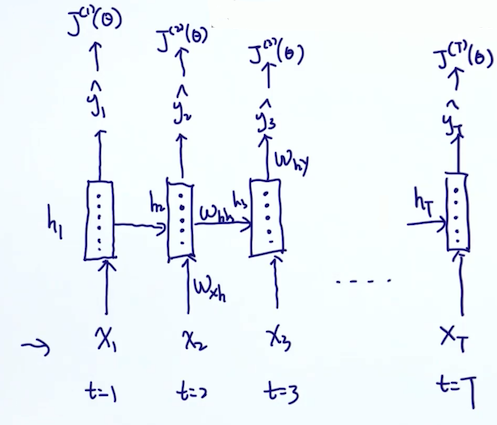 J⁽¹⁾(θ) J⁽²⁾(θ) J⁽³⁾(θ) J⁽ᵀ⁾(θ)
ŷ₁ ŷ₂ ŷ₃ ŷ_T
W_hy
h₁ h₂ W_hh h₃ h_T
W_xh
→ x₁ x₂ x₃ ---- x_T
t=1 t=2 t=3 t=T